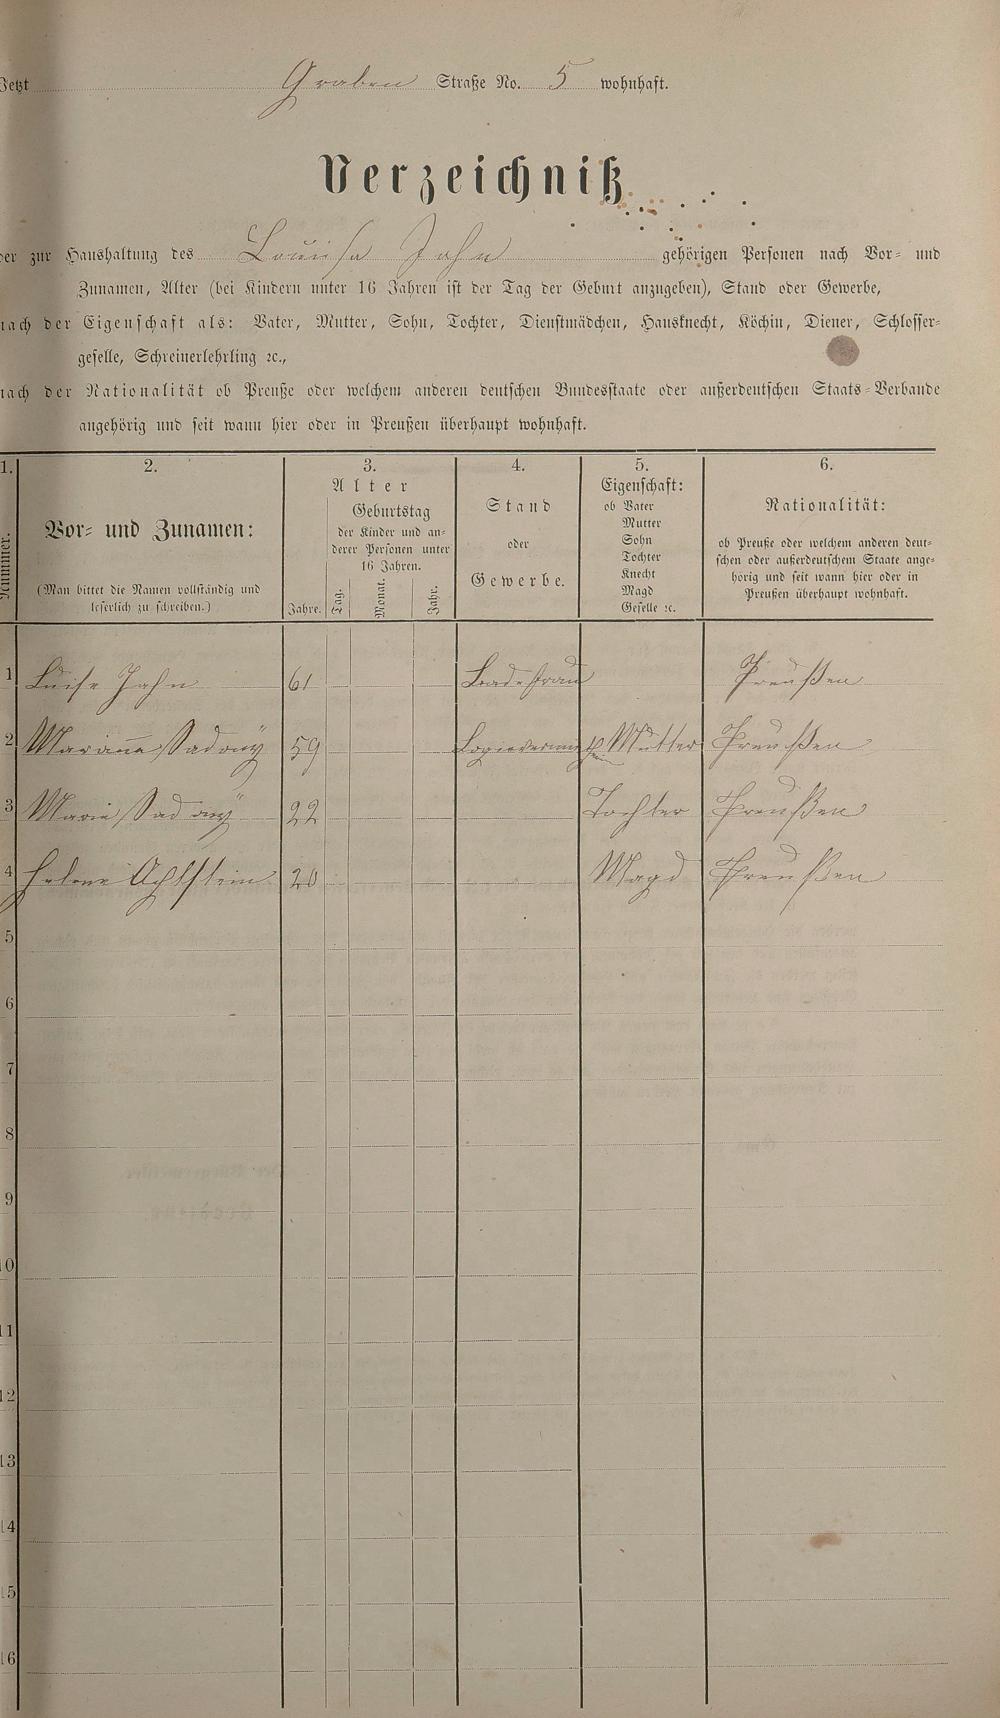 Jetzt Graben Straße No. 5 wohnhaft.
Verzeichniß
der zur Haushaltung des Louisa Jahn gehörigen Personen nach Vor- und
Zunamen, Alter (bei Kindern unter 16 Jahren ist der Tag der Geburt anzugeben), Stand oder Gewerbe,
nach der Eigenschaft als: Vater, Mutter, Sohn, Tochter, Dienstmädchen, Hausknecht, Köchin, Diener, Schlosser-
geselle, Schreinerlehrling ꝛc.,
nach der Nationalität ob Preuße oder welchem anderen deutschen Bundesstaate oder außerdeutschen Staats-Verbande
angehörig und seit wann hier oder in Preußen überhaupt wohnhaft.
1. 2. 3. 4. 5. 6.
Nummer.
Vor- und Zunamen:
(Man bittet die Namen vollständig und
leserlich zu schreiben.)
Alter
Jahre.
Geburtstag
der Kinder und an-
derer Personen unter
16 Jahren.
Tag. Monat. Jahr.
Stand
oder
Gewerbe.
Eigenschaft:
ob Vater
Mutter
Sohn
Tochter
Knecht
Magd
Geselle ꝛc.
Nationalität:
ob Preuße oder welchem anderen deut-
schen oder außerdeutschem Staate ange-
hörig und seit wann hier oder in
Preußen überhaupt wohnhaft.
1 Luise Jahn 61 Badefrau Preußen
2 Mariana Sadony 59 Mutter Preußen
3 Marie Sadony 22 Tochter Preußen
4 Helene Achtstein 20 Magd Preußen
5
6
7
8
9
10
11
12
13
14
15
16